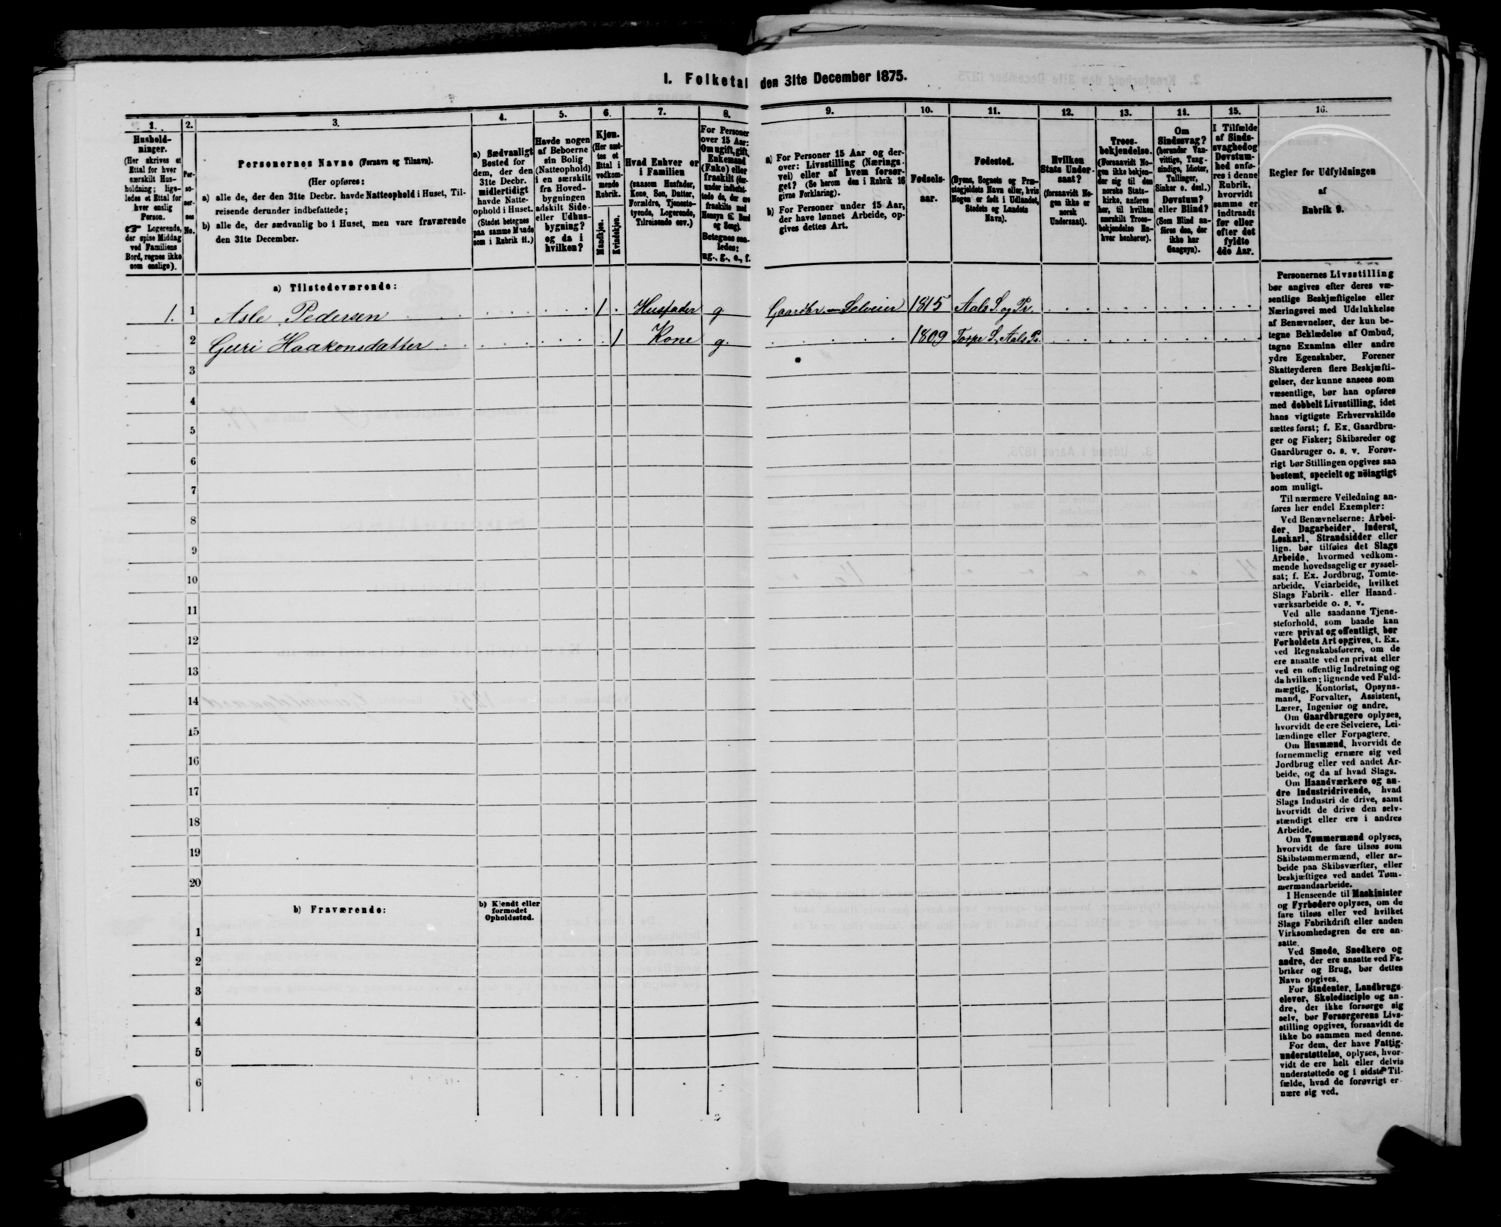 1. Folketal den 31te December 1875.
1. 2. 3. 4. 5. 6. 7. 8. 9. 10. 11. 12. 13. 14. 15. 16.
Hushold-
ninger.
(Her skrives et
Ettal for hver
særskilt Hus-
holdning; lige-
ledes et Ettal for
hver enslig
Person.
Logerende,
der spise Middag
ved Familiens
Bord, regnes ikke
som enslige).
Per-
so-
ner-
nes
No.
Personernes Navne (Fornavn og Tilnavn).
(Her opføres:
a) alle de, der den 31te Decbr. havde Natteophold i Huset, Til-
reisende derunder indbefattede;
b) alle de, der sædvanlig bo i Huset, men vare fraværende
den 31te December.
a) Sædvanligt
Bosted for
dem, der den
31te Decbr.
midlertidigt
havde Natte-
ophold i Huset.
(Stedet betegnes
paa samme Maade
som i Rubrik 11.)
Havde nogen
af Beboerne
sin Bolig
(Natteophold)
i en særskilt
fra Hoved-
bygningen
adskilt Side-
eller Udhus-
bygning?
og da i
hvilken?
Kjøn.
(Her sæt-
tes et
Ettal i
vedkom-
mende
Rubrik.
Mandkjøn.
Kvindekjøn.
Hvad Enhver er
i Familien
(saasom Husfader,
Kone, Søn, Datter,
Forældre, Tjeneste-
tyende, Logerende,
Tilreisende osv.)
For Personer
over 15 Aar:
Om ugift, gift,
Enkemand
(Enke) eller
fraskilt
Betegnes saa-
ledes:
ug., g., e., f.
a) For Personer 15 Aar og der-
over: Livsstilling (Nærings-
vei) eller af hvem forsør-
get? (Se herom den i Rubrik 16
givne Forklaring).
b) For Personer under 15 Aar,
der have lønnet Arbeide, op-
gives dettes Art.
Fødsels-
aar.
Fødested.
(Byens, Sognets og Præ-
stegjeldets Navn eller, hvis
Nogen er født i Udlandet,
Stedets og Landets
Navn).
Hvilken
Stats Under-
saat?
(forsaavidt No-
gen ikke er
norsk
Undersaat).
Troes-
bekjendelse.
(Forsaavidt No-
gen ikke bekjen-
der sig til den
norske Stats-
kirke, anføres
her, til hvilken
særskilt Troes-
bekjendelse En-
hver henhører).
Om
Sindssvag?
(herunder Van-
vittige, Tung-
sindige, Idioter,
Tullinger,
Sinker o. desl.)
Døvstum?
eller Blind?
(Som Blind an-
føres den, der
ikke har
Gangsyn).
I Tilfælde
af Sinds-
svaghed og
Døvstum-
hed anfø-
res i denne
Rubrik,
hvorvidt
samme er
indtraadt
før eller
efter det
fyldte
4de Aar.
Regler for Udfyldningen
af
Rubrik 9.
a) Tilstedeværende:
1. 1 Asle Pedersen 1 Husfader g Gaardbr. Selveier 1815 Aals S. og Pr.
2 Guri Haakonsdatter 1 Kone g. 1809 Torpe S. Aals Pr.
3
4
5
6
7
8
9
10
11
12
13
14
15
16
17
18
19
20
b) Fraværende:
b) Kjendt eller
formodet
Opholdssted.
1
2
3
4
5
6
Personernes Livsstilling
bør angives efter deres væ-
sentlige Beskjæftigelse eller
Næringsvei med Udelukkelse
af Benævnelser, der kun be-
tegne Beklædelse af Ombud,
tagne Examina eller andre
ydre Egenskaber. Forener
Skatteyderen flere Beskjæfti-
gelser, der kunne ansees som
væsentlige, bør han opføres
med dobbelt Livsstilling, idet
hans vigtigste Erhvervskilde
sættes først; f. Ex. Gaardbru-
ger og Fisker; Skibsreder og
Gaardbruger o. s. v. Forøv-
rigt bør Stillingen opgives saa
bestemt, specielt og nöiagtigt
som muligt.
Til nærmere Veiledning an-
føres her endel Exempler:
Ved Benævnelserne: Arbei-
der, Dagarbeider, Inderst,
Løskarl, Strandsidder eller
lign. bør tilføies det Slags
Arbeide, hvormed vedkom-
mende hovedsagelig er syssel-
sat; f. Ex. Jordbrug, Tomte-
arbeide, Veiarbeide, hvilket
Slags Fabrik- eller Haand-
værksarbeide o. s. v.
Ved alle saadanne Tjene-
steforhold, som baade kan
være privat og offentligt, bør
Forholdets Art opgives, t. Ex.
ved Regnskabsførere, om de
ere ansatte ved en privat eller
ved en offentlig Indretning og
da hvilken; lignende ved Fuld-
mægtig, Kontorist, Opsyns-
mand, Forvalter, Assistent,
Lærer, Ingeniør og andre.
Om Gaardbrugere oplyses,
hvorvidt de ere Selveiere, Lei-
lændinge eller Forpagtere.
Om Husmænd, hvorvidt de
fornemmelig ernære sig ved
Jordbrug eller ved andet Ar-
beide, og da af hvad Slags.
Om Haandværkere og an-
dre Industridrivende, hvad
Slags Industri de drive, samt
hvorvidt de drive den selv-
stændigt eller ere i andres
Arbeide.
Om Tømmermænd oplyses,
hvorvidt de fare tilsøs som
Skibstømmermænd, eller ar-
beide paa Skibsværfter, eller
beskjæftiges ved andet Tøm-
mermandsarbeide.
I Henseende til Maskinister
og Fyrbødere oplyses, om de
fare tilsøs eller ved hvilket
Slags Fabrikdrift eller anden
Virksomhedsgren de ere an-
satte.
Ved Smede, Snedkere og
andre, der ere ansatte ved Fa-
briker og Brug, bør dettes
Navn opgives.
For Studenter, Landbrugs-
elever, Skoledisciple og an-
dre, der ikke forsørge sig
selv, bør Forsørgerens Livs-
stilling opgives, forsaavidt de
ikke bo sammen med denne.
For dem, der have Fattig-
understøttelse, oplyses, hvor-
vidt de ere helt eller delvis
understøttede og i sidste Til-
fælde, hvad de forøvrigt er-
nære sig ved.